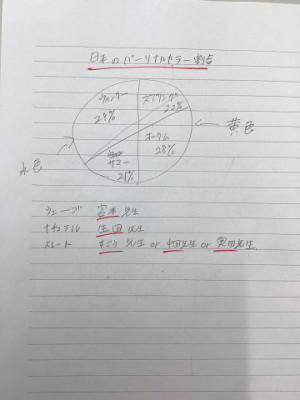 日本のパーソナルカラー割合
ウィンター
29%
スプリング
22%
オータム
28%
サマー
21%
黄色
水色
ウェーブ 宮本先生
ナチュラル 生田先生
ストレート すごう先生 or 中田先生 or